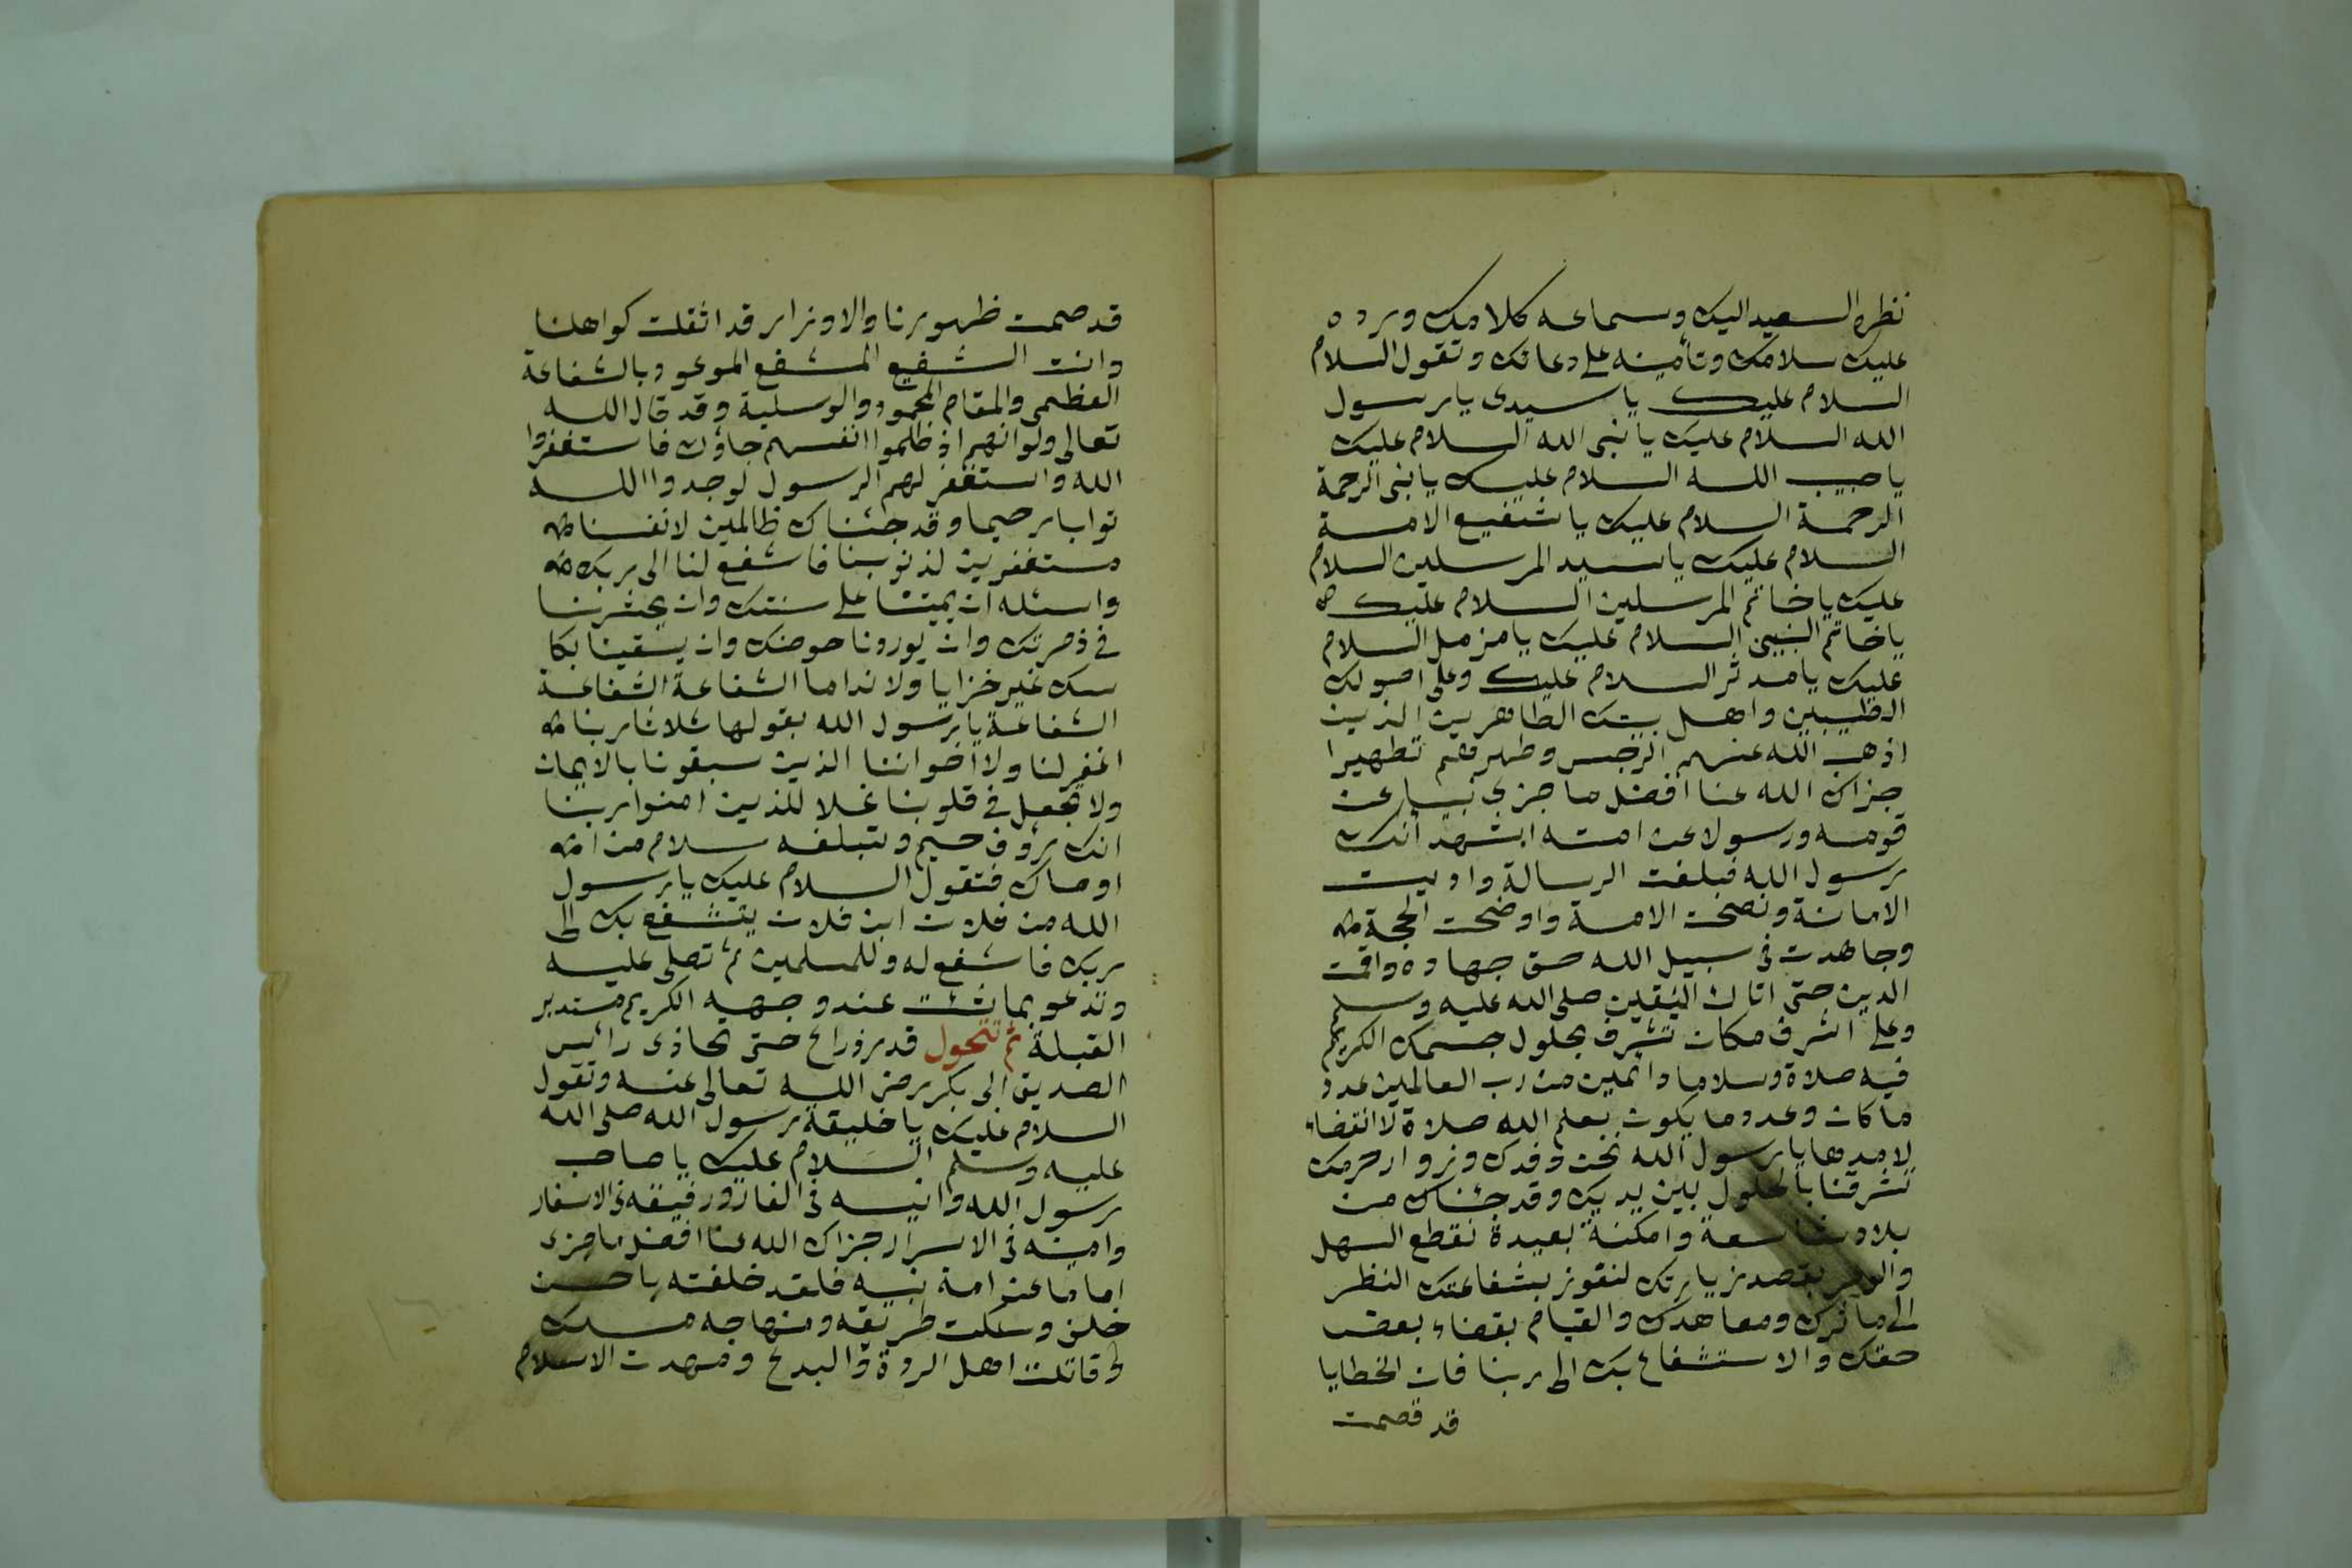 نظره السعيد اليك وسماعه كلامك ورده
عليك سلامك وتأمينه على دعائك وتقول السلام
السلام عليك يا سيدى يا رسول
الله السلام عليك يا نبى الله السلام عليك
يا حبيب الله السلام عليك يا نبى الرحمة
الرحمة السلام عليك يا شفيع الامة
السلام عليك يا سيد المرسلين السلام
عليك يا خاتم المرسلين السلام عليك
يا خاتم النبيى السلام عليك يا مزمل السلام
عليك يا مدثر السلام عليك وعلى اصولك
الطيبين واهل بيتك الطاهرين الذين
اذهب الله عنهم الرجس وطهرهم تطهيرا
جزاك الله عنا افضل ما جزى نبيا عن
قومه ورسولا عن امته اشهد أنك
رسول الله فبلغت الرسالة واديت
الامانة ونصحت الامة واوضحت الحجة
وجاهدت فى سبيل الله حق جهاده واقمت
الدين حتى اتاك اليقين صلى الله عليه وسلم
وعلى اشرف مكان تشرف بحلول جسمك الكريم
فيه صلاة وسلاما دائمين من رب العالمين عدد
ما كان وعدد ما يكون بعلم الله صلاة لا انقضاء
لامدها يا رسول الله نحن وفدك وزوار حرمك
تشرفنا بالحلول بين يديك وقد جئناك من
بلاد شاسعة وامكنة بعيدة نقطع السهل
والوعر بقصد زيارتك لنفوز بشفاعتك النظر
الى مآثرك ومعاهدك والقيام بقضاء بعض
حقك والاستشفاع بك الى ربنا فان الخطايا
قد قصمت
قد صمت ظهورنا والاوزار قد اثقلت كواهلنا
وانت الشفيع المشفع الموعود بالشفاعة
العظمى والمقام المحمود والوسلية وقد قال الله
تعالى ولو انهم اذ ظلموا انفسهم جاؤك فاستغفروا
الله واستغفر لهم الرسول لوجدوا الله
توابا رحيما وقد جئناك ظالمين لانفسنا
مستغفرين لذنوبنا فاشفع لنا الى ربك
واسئله ان يميتنا على سنتك وان يحشرنا
فى زمرتك وان يوردنا حوضك وان يسقينا بكا
سك غير خزايا ولا نداما الشفاعة الشفاعة
الشفاعة يا رسول الله بقولها ثلاثا ربنا
اغفر لنا ولا اخواننا الذين سبقونا بالايمان
ولا تجعل فى قلوبنا غلا للذين امنوا ربنا
انك رؤف رحيم وتبلغه سلام من
اوصاك فتقول السلام عليك يا رسول
الله من فلان ابن فلان يتشفع بك الى
ربك فاشفع له وللمسلمين ثم تصلى عليه
وتدعو بما شئت عند وجهه الكريم مستدبر
القبلة ثم تتحول قدر ذراع حتى تحاذى رائس
الصديق ابى بكر رضى الله تعالى عنه وتقول
السلام عليك يا خليفة رسول الله صلى الله
عليه وسلم السلام عليك يا صاحب
رسول الله وانيسه فى الغار ورفيقه فى الاسفار
وامينه فى الاسرار جزاك الله عنا افضل ما جزى
اماما عن امة نبيه فلقد خلفته باحسن
خلف وسلكت طريقه ومنهاجه مسلك
وقاتلت اهل الردة والبدع ومهدت الاسلام